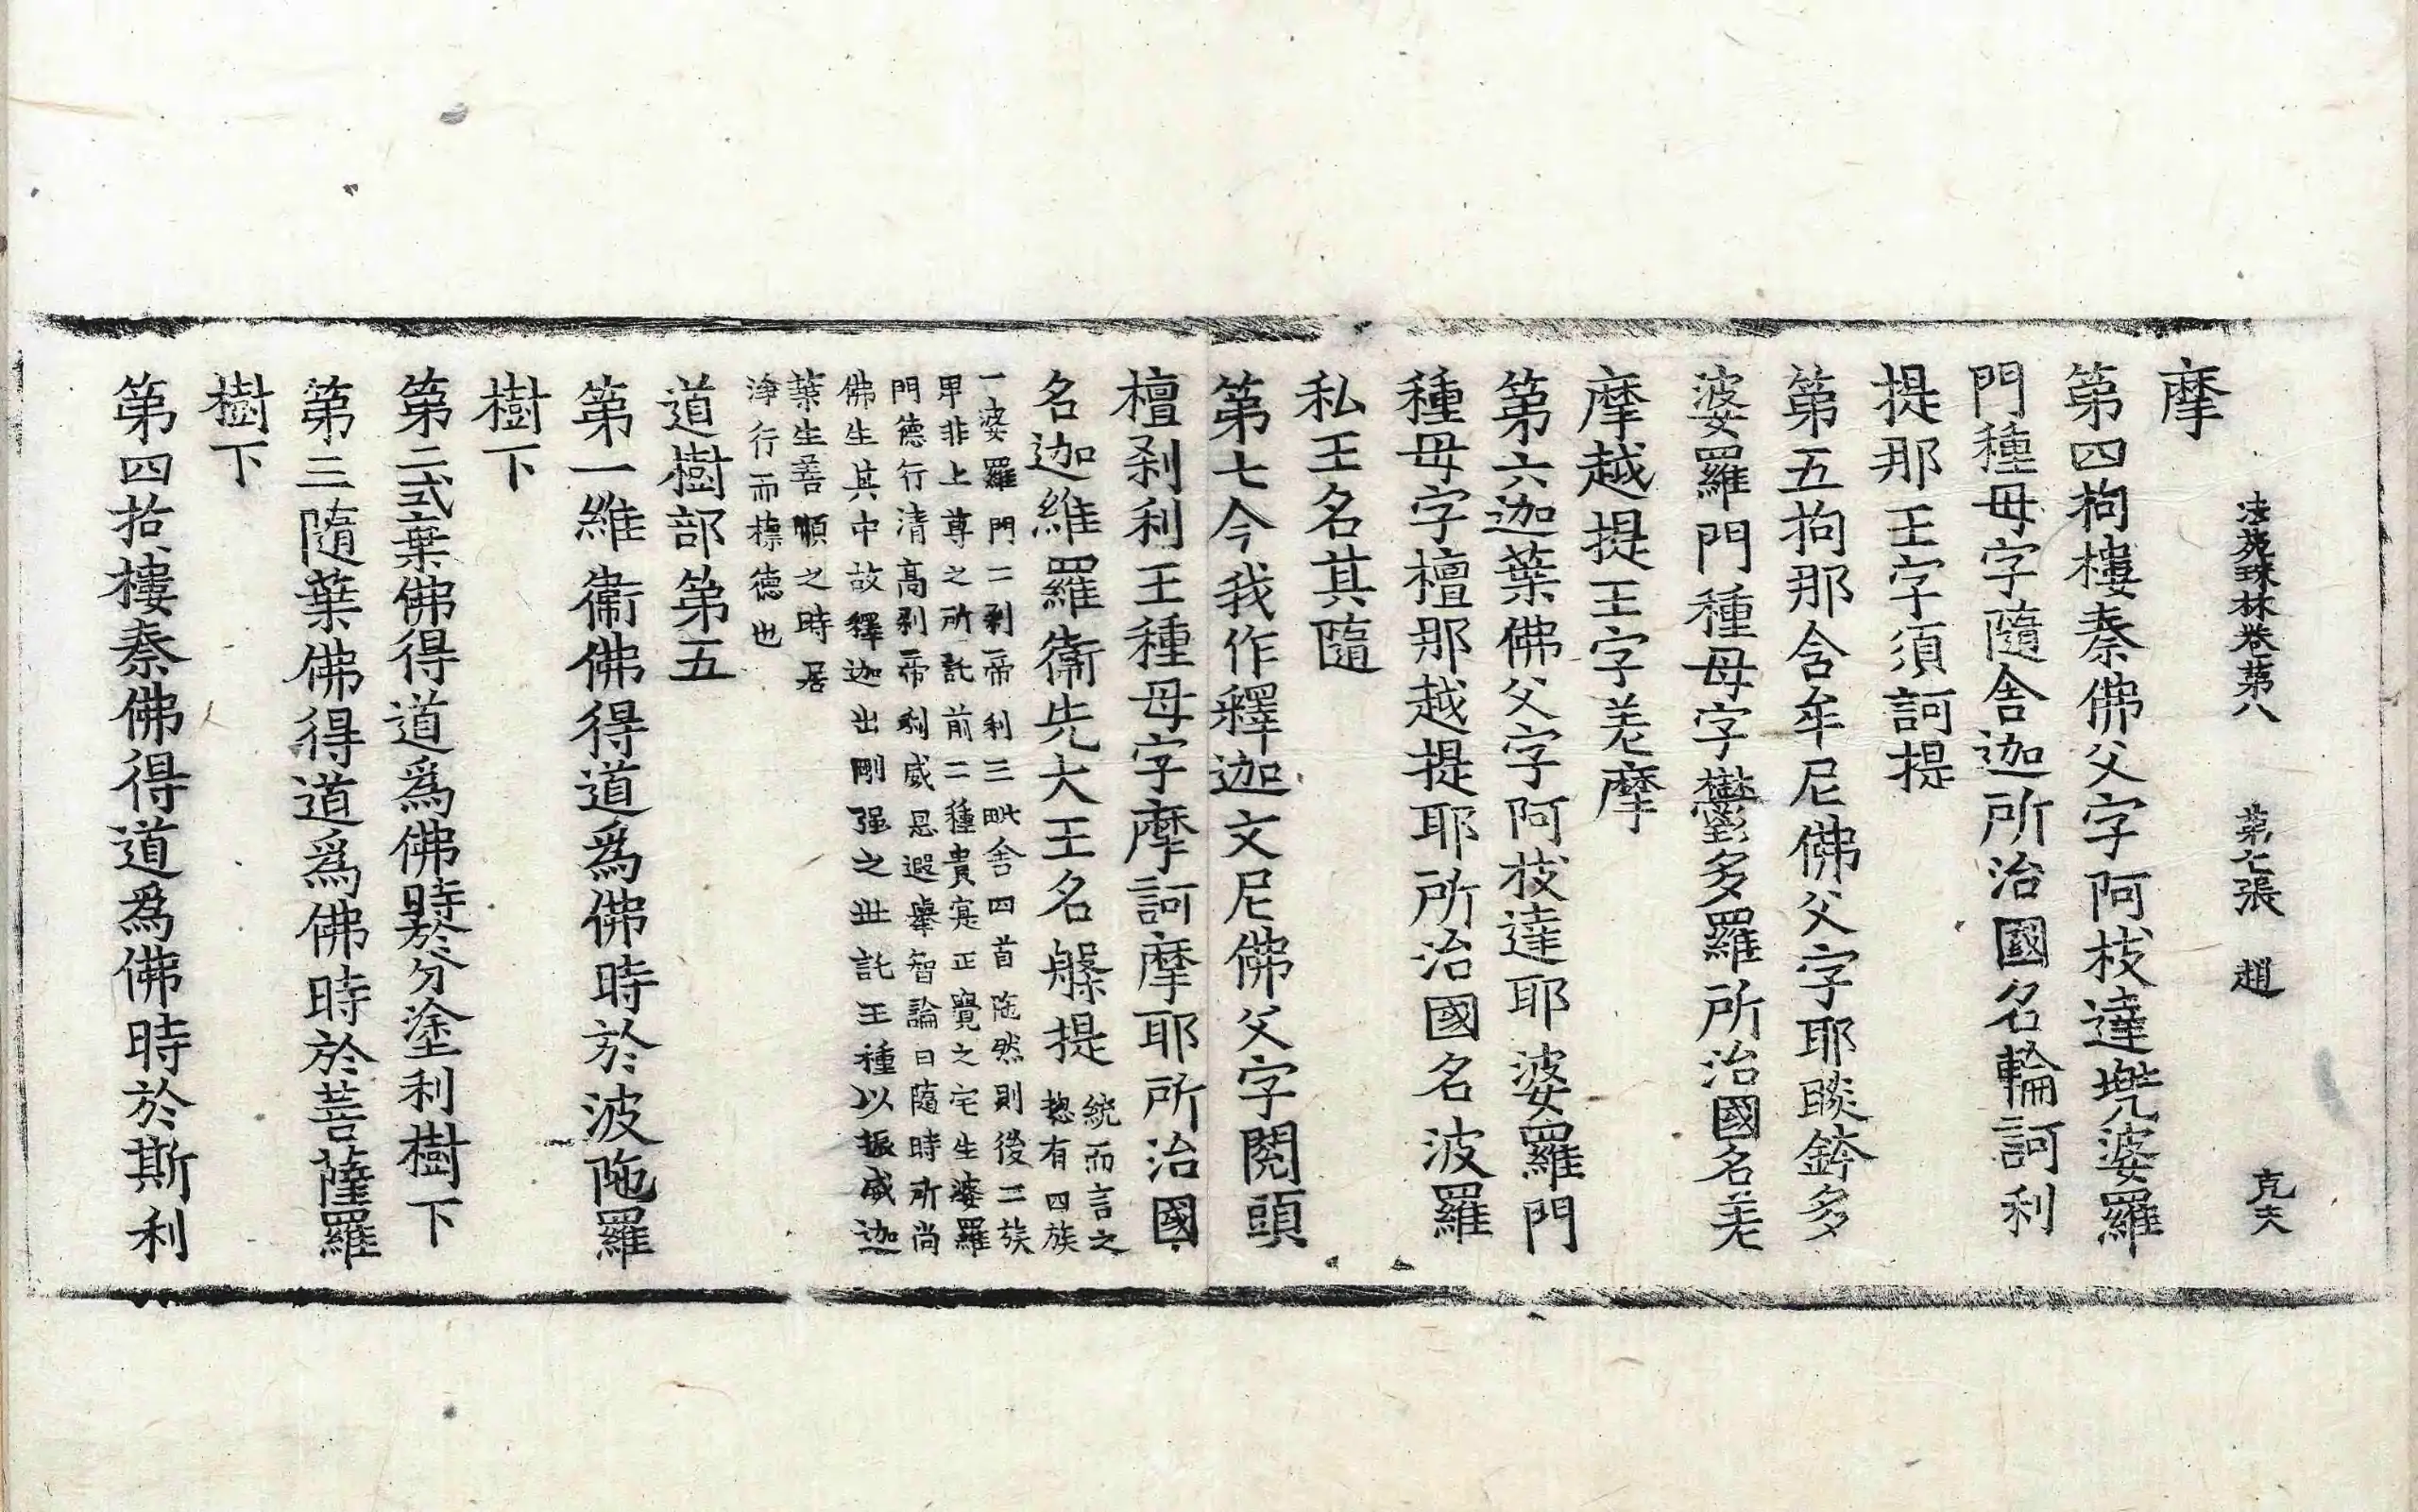 法苑珠林卷第八　第七張　趙　克夫
摩
第四拘樓秦佛父字阿枝達兠婆羅
門種母字隨舍迦所治國名輪訶利
提那王字須訶提
第五拘那含牟尼佛父字耶睒鉾多
婆羅門種母字鬱多羅所治國名羌
摩越提王字羌摩
第六迦葉佛父字阿枝達耶婆羅門
種母字檀那越提耶所治國名波羅
私王名其隨
第七今我作釋迦文尼佛父字閱頭
檀刹利王種母字摩訶摩耶所治國
名迦維羅衞先大王名槃提
統而言之
揔有四族
一婆羅門二刹帝利三毗舍四首陁然則後二族
甲非上尊之所託前二種貴寔正覺之宅生婆羅
門德行清高刹帝利威恩遐舉智論曰隨時所尚
佛生其中故釋迦出剛强之世託王種以振威迦
葉生善順之時居
淨行而標德也
道樹部第五
第一維衞佛得道爲佛時於波陁羅
樹下
第二式棄佛得道爲佛時於分塗利樹下
第三隨葉佛得道爲佛時於菩薩羅
樹下
第四拘樓秦佛得道爲佛時於斯利